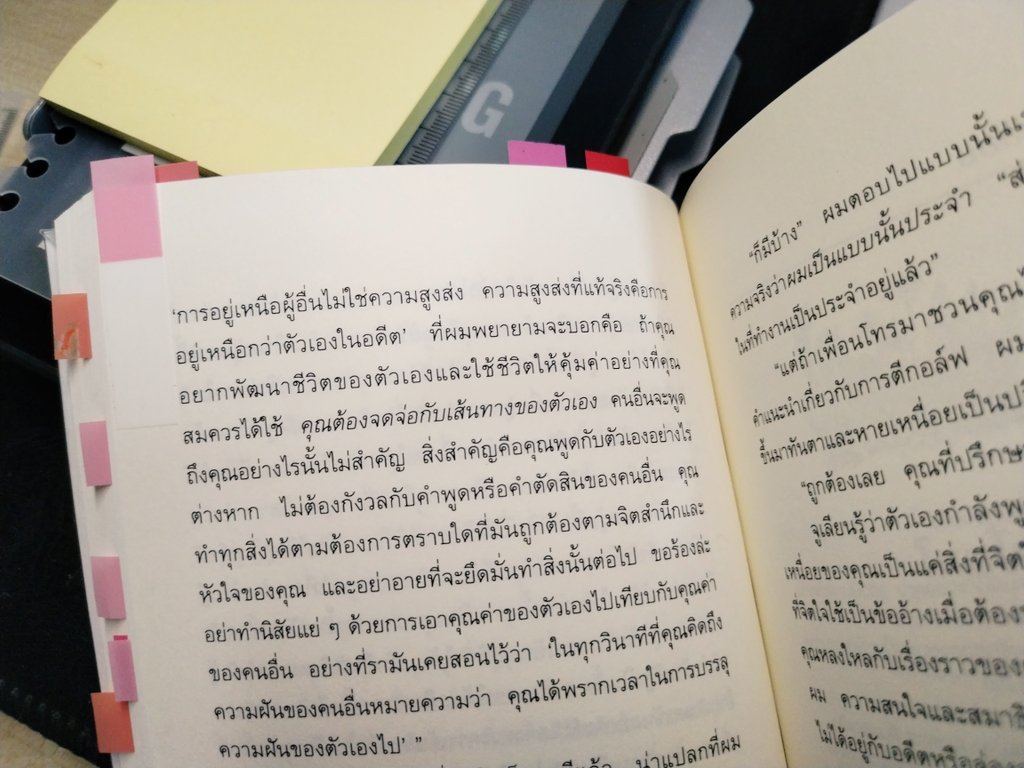 G
'การอยู่เหนือผู้อื่นไม่ใช่ความสูงส่ง ความสูงส่งที่แท้จริงคือการ
อยู่เหนือกว่าตัวเองในอดีต' ที่ผมพยายามจะบอกคือ ถ้าคุณ
อยากพัฒนาชีวิตของตัวเองและใช้ชีวิตให้คุ้มค่าอย่างที่คุณ
สมควรได้ใช้ คุณต้องจดจ่อกับเส้นทางของตัวเอง คนอื่นจะพูด
ถึงคุณอย่างไรนั้นไม่สำคัญ สิ่งสำคัญคือคุณพูดกับตัวเองอย่างไร
ต่างหาก ไม่ต้องกังวลกับคำพูดหรือคำตัดสินของคนอื่น คุณ
ทำทุกสิ่งได้ตามต้องการตราบใดที่มันถูกต้องตามจิตสำนึกและ
หัวใจของคุณ และอย่าอายที่จะยึดมั่นทำสิ่งนั้นต่อไป ขอร้องล่ะ
อย่าทำนิสัยแย่ ๆ ด้วยการเอาคุณค่าของตัวเองไปเทียบกับคุณค่า
ของคนอื่น อย่างที่รามันเคยสอนไว้ว่า 'ในทุกวินาทีที่คุณคิดถึง
ความฝันของคนอื่นหมายความว่า คุณได้พรากเวลาในการบรรลุ
ความฝันของตัวเองไป' "
น่าแปลกที่ผม
"ก็มีบ้าง" ผมตอบไปแบบนั้น
ความจริงว่าผมเป็นแบบนั้นประจำ
ในที่ทำงานเป็นประจำอยู่แล้ว"
"แต่ถ้าเพื่อนโทรมาชวนคุณ
คำแนะนำเกี่ยวกับการตีกอล์ฟ
ขึ้นมาทันตาและหายเหนื่อยเป็น
"ถูกต้องเลย คุณที่ปรึกษ
จูเลียนรู้ว่าตัวเองกำลัง
เหนื่อยของคุณเป็นแค่สิ่งที่
ที่จิตใจใช้เป็นข้ออ้างเมื่อต้อง
คุณหลงใหลกับเรื่องราวของ
ผม ความสนใจและสมา
ไม่ได้อยู่กับอดีตหรือ